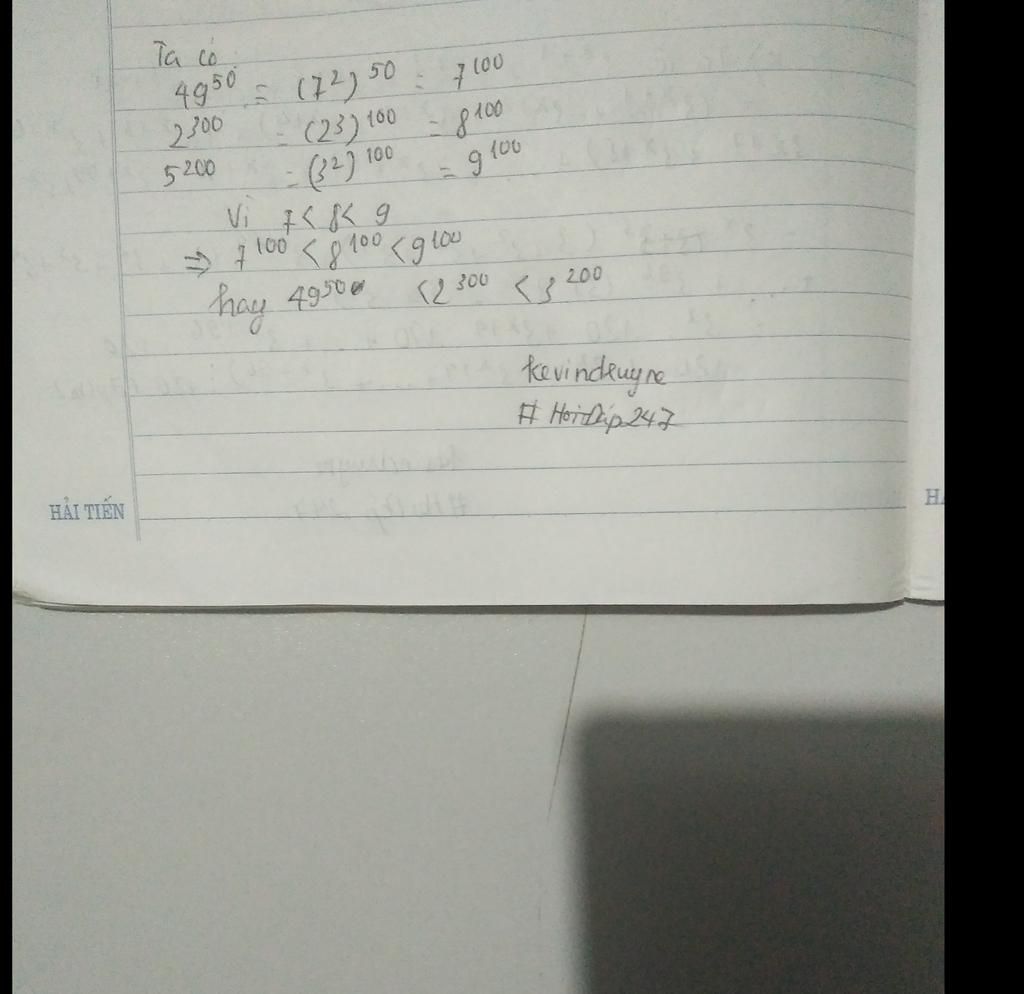 Ta có
49^50 = (7^2)^50 = 7^100
2^300 = (2^3)^100 = 8^100
5^200 = (3^2)^100 = 9^100
Vì 7 < 8 < 9
⇒ 7^100 < 8^100 < 9^100
hay 49^50 < 2^300 < 3^200
#Hoidap247
HẢI TIẾN